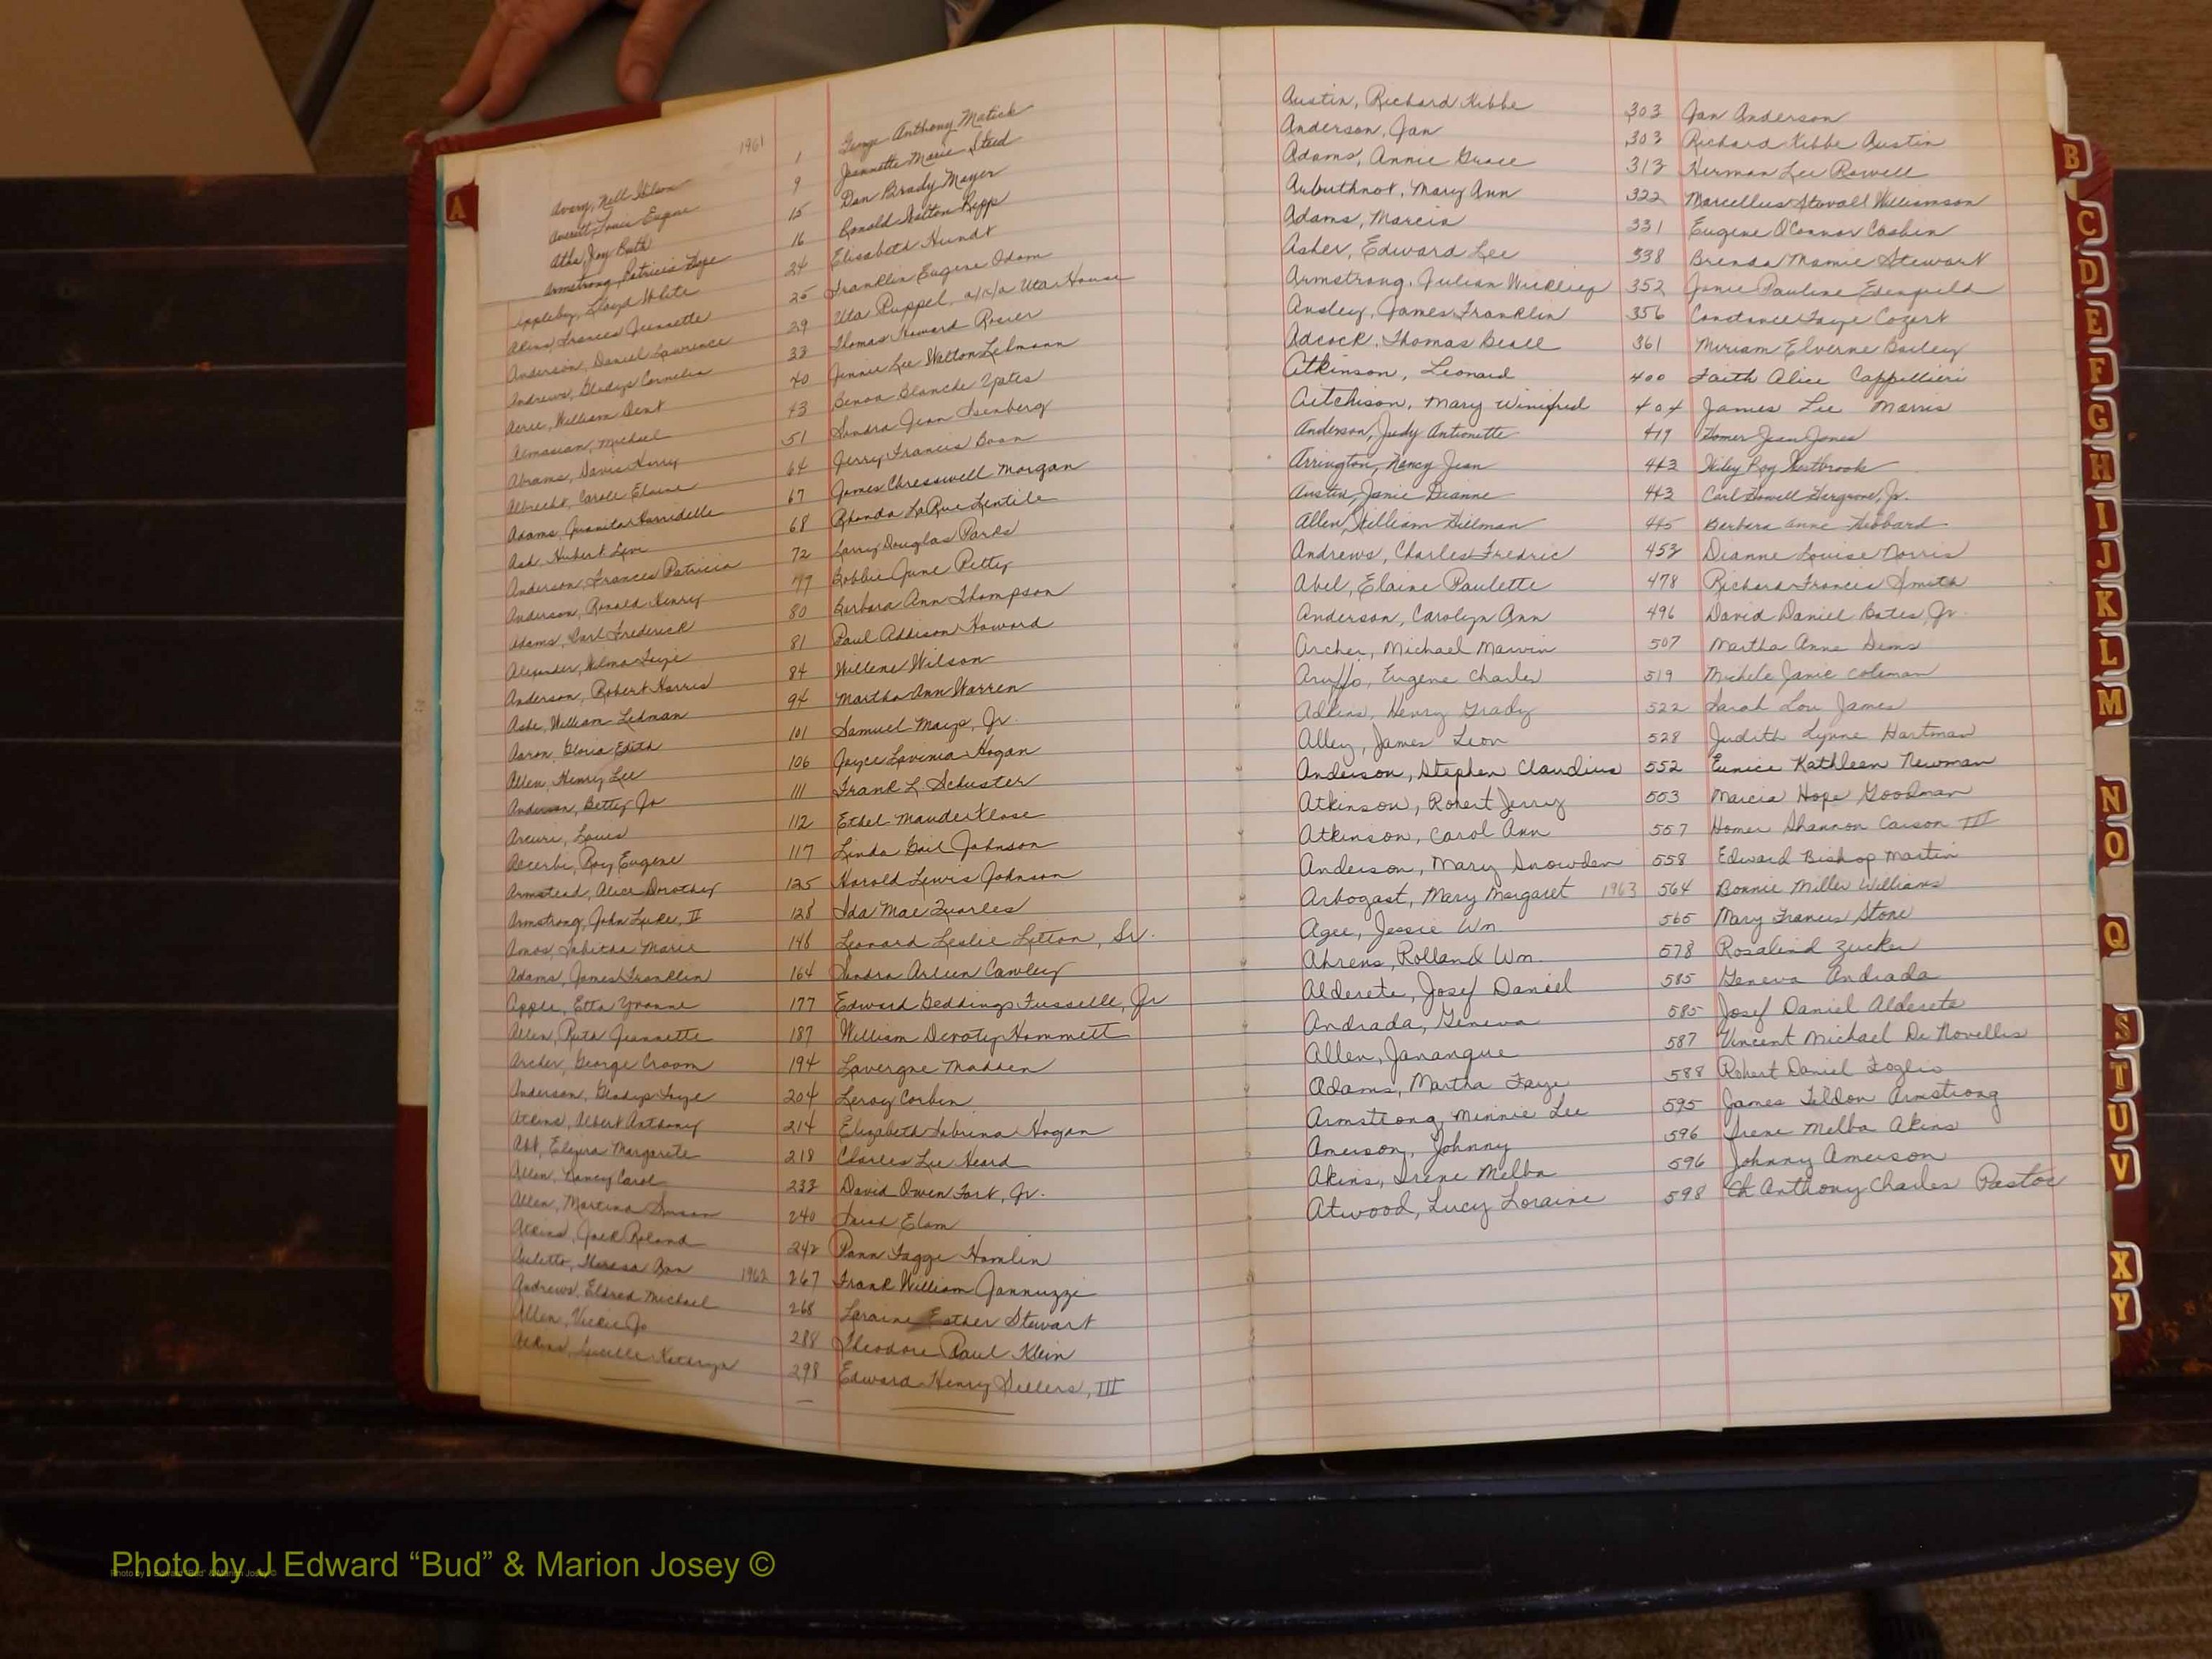 1961
Avery, Nell Wilson 1 George Anthony Matick
Averett, Louie Eugene 9 Jeannette Marie Steed
Atha, Joy Ruth 15 Dan Brady Mayer
Armstrong, Patricia Hope 16 Ronald Walton Kipp
Appleby, Lloyd White 24 Elisabeth Hundt
Akins, Frances Jeannette 25 Franklin Eugene Odom
Anderson, Daniel Lawrence 29 Uta Puppel, a/k/a Uta House
Andrews, Gladys Cornelia 33 Thomas Howard Rosier
Acree, William Dent 40 Jennie Lee Walton Lehmann
Almasian, Michael 43 Benoa Blanche Yates
Abrams, Davis Harry 51 Sandra Jean Isenberg
Albrecht, Carole Elaine 64 Jerry Francis Boan
Adams, Juanita 67 James Chresswell Morgan
Ash, Hubert Levi 68 Rhonda LaRue Lentile
Anderson, Frances Patricia 72 Larry Douglas Parks
Anderson, Ronald Henry 77 Bobbie June Petty
Adams, Carl Frederick 80 Barbara Ann Thompson
Alexander, Wilma Faye 81 Paul Addison Howard
Anderson, Robert Harris 84 Willene Wilson
Ashe, William Ledman 94 Martha Ann Warren
Aaron, Gloria Edith 101 Samuel Mays, Jr.
Allen, Henry Lee 106 Joyce Lavinia Hogan
Anderson, Betty Jo 111 Frank L Schuster
Arcuri, Louis 112 Ethel Maude Klose
Acerbi, Roy Eugene 117 Linda Gail Johnson
Armstead, Alice Dorothy 125 Harold Lewis Johnson
Armstrong, John Luke, II 128 Ida Mae Quarles
Amos, Tabitha Marie 146 Leonard Leslie Litton, Sr.
Adams, James Franklin 164 Sandra Arleen Cawley
Apple, Etta Yvonne 177 Edward Geddings Fusselle, Jr
Allen, Ruth Jeannette 187 William Devoty Hammett
Archer, George Croom 194 Lavergne Madden
Anderson, Gladys Faye 204 Leroy Corbin
Atkins, Albert Anthony 214 Elizabeth Sabrina Hogan
Abt, Elvira Margarete 218 Charles Lee Heard
Allen, Nancy Carol 233 David Owen Fort, Jr.
Allen, Martina Susan 240 Elam
Atkins, Jack Roland 242 Pann Fagge Hamlin
Auletto, Theresa Ann 1962 267 Frank William Jannuzzi
Andrews, Eldred Michael 268 Laraine Esther Stewart
Allen, Vickie Jo 288 Theodore Paul Klein
Adkins, Lucille Kathryn 298 Edward Henry Sellers, III
Austin, Richard Kibbe 303 Jan Anderson
Anderson, Jan 303 Richard Kibbe Austin
Adams, Annie Grace 313 Herman Lee Rowell
Arbuthnot, Mary Ann 322 Marcellus Stovall Williamson
Adams, Marcia 331 Eugene O'Connor Cashin
Asher, Edward Lee 338 Brenda Mamie Stewart
Armstrong, Julian Wicklief 352 Janie Pauline Edenfield
Ansley, James Franklin 356 Constance Faye Cozart
Adcock, Thomas Beall 361 Miriam Elverne Bailey
Atkinson, Leonard 400 Faith Alice Cappellieri
Aitchison, Mary Winifred 404 James Lee Morris
Anderson, Judy Antionette 419 Homer Jean Jones
Arrington, Nancy Jean 443 Wiley Roy Westbrook
Austin, Janie Dianne 443 Carl Lowell Hargrove, Jr.
Allen, William Hillman 445 Barbara Anne Hibbard
Andrews, Charles Fredric 453 Dianne Louise Norris
Abel, Elaine Paulette 478 Richard Francis Smith
Anderson, Carolyn Ann 496 David Daniel Bates, Jr.
Archer, Michael Marvin 507 Martha Anne Sims
Aruffo, Eugene Charles 519 Michele Janie Coleman
Adkins, Henry Grady 522 Sarah Lou James
Alley, James Leon 528 Judith Lynne Hartman
Anderson, Stephen Claudius 552 Eunice Kathleen Newman
Atkinson, Robert Jerry 553 Marcia Hope Goodman
Atkinson, Carol Ann 557 Homer Shannon Carson III
Anderson, Mary Snowden 558 Edward Bishop Martin
Arbogast, Mary Margaret 1963 564 Bonnie Miller Williams
Agee, Jessie Wm. 565 Mary Frances Stone
Ahrens, Rolland Wm. 578 Rosalind Zucker
Alderete, Josef Daniel 585 Geneva Andrada
Andrada, Geneva 585 Josef Daniel Alderete
Allen, Jananque 587 Vincent Michael De Novellis
Adams, Martha Faye 588 Robert Daniel Foglio
Armstrong, Minnie Lee 595 James Tildon Armstrong
Amerson, Johnny 596 Irene Melba Akins
Akins, Irene Melba 596 Johnny Amerson
Atwood, Lucy Loraine 598 Anthony Charles Pastor
A
B
C
D
E
F
G
H
I
J
K
L
M
N
O
Q
S
T
U
V
X
Y
Photo by J Edward “Bud” & Marion Josey ©
Photo by J Edward “Bud” & Marion Josey ©